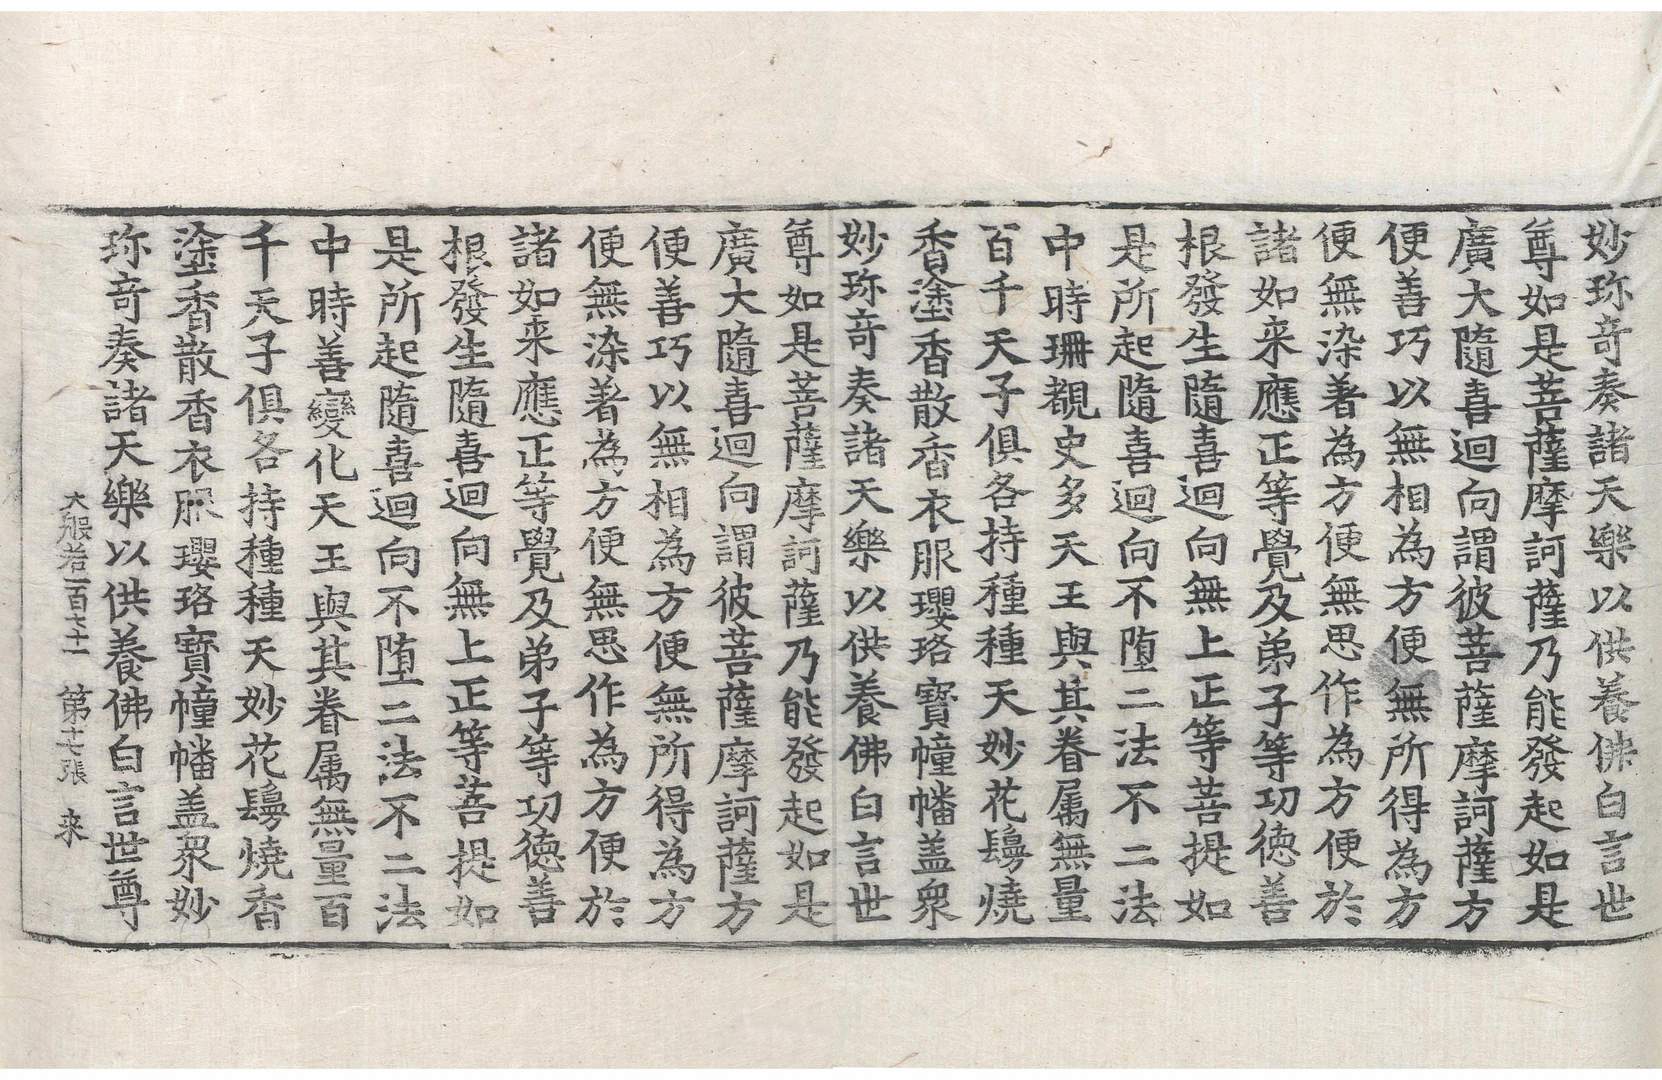 妙珎竒奏諸天樂以供養佛白言世
尊如是菩薩摩訶薩乃能發起如是
廣大隨喜迴向謂彼菩薩摩訶薩方
便善巧以無相為方便無所得為方
便無染著為方便無思作為方便於
諸如来應正等覺及弟子等功德善
根發生隨喜迴向無上正等菩提如
是所起隨喜迴向不墮二法不二法
中時珊覩史多天王與其眷属無量
百千天子俱各持種種天妙花鬘燒
香塗香散香衣服瓔珞寶幢幡盖衆
妙珎竒奏諸天樂以供養佛白言世
尊如是菩薩摩訶薩乃能發起如是
廣大隨喜迴向謂彼菩薩摩訶薩方
便善巧以無相為方便無所得為方
便無染著為方便無思作為方便於
諸如来應正等覺及弟子等功德善
根發生隨喜迴向無上正等菩提如
是所起隨喜迴向不墮二法不二法
中時善變化天王與其眷属無量百
千天子俱各持種種天妙花鬘燒香
塗香散香衣服瓔珞寶幢幡盖衆妙
珎竒奏諸天樂以供養佛白言世尊
大般若一百七十一 第十七張 来